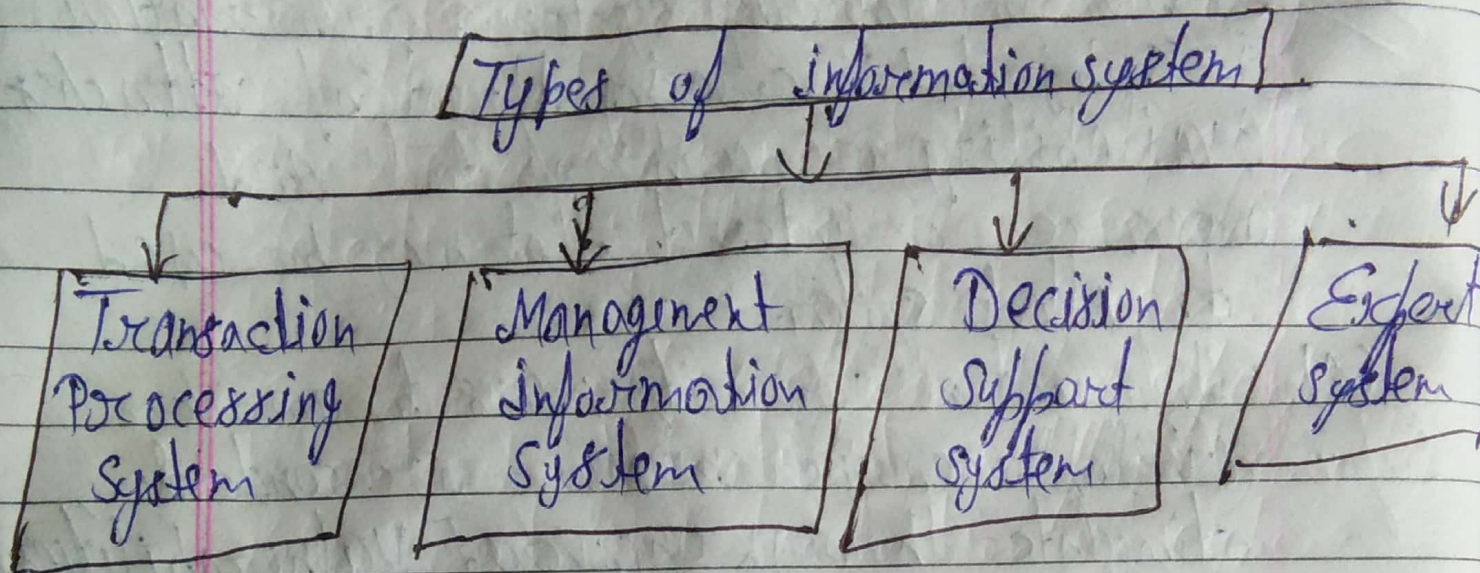 Types of information system
Transaction
Processing
System
Management
information
system
Decision
Support
system
Expert
system